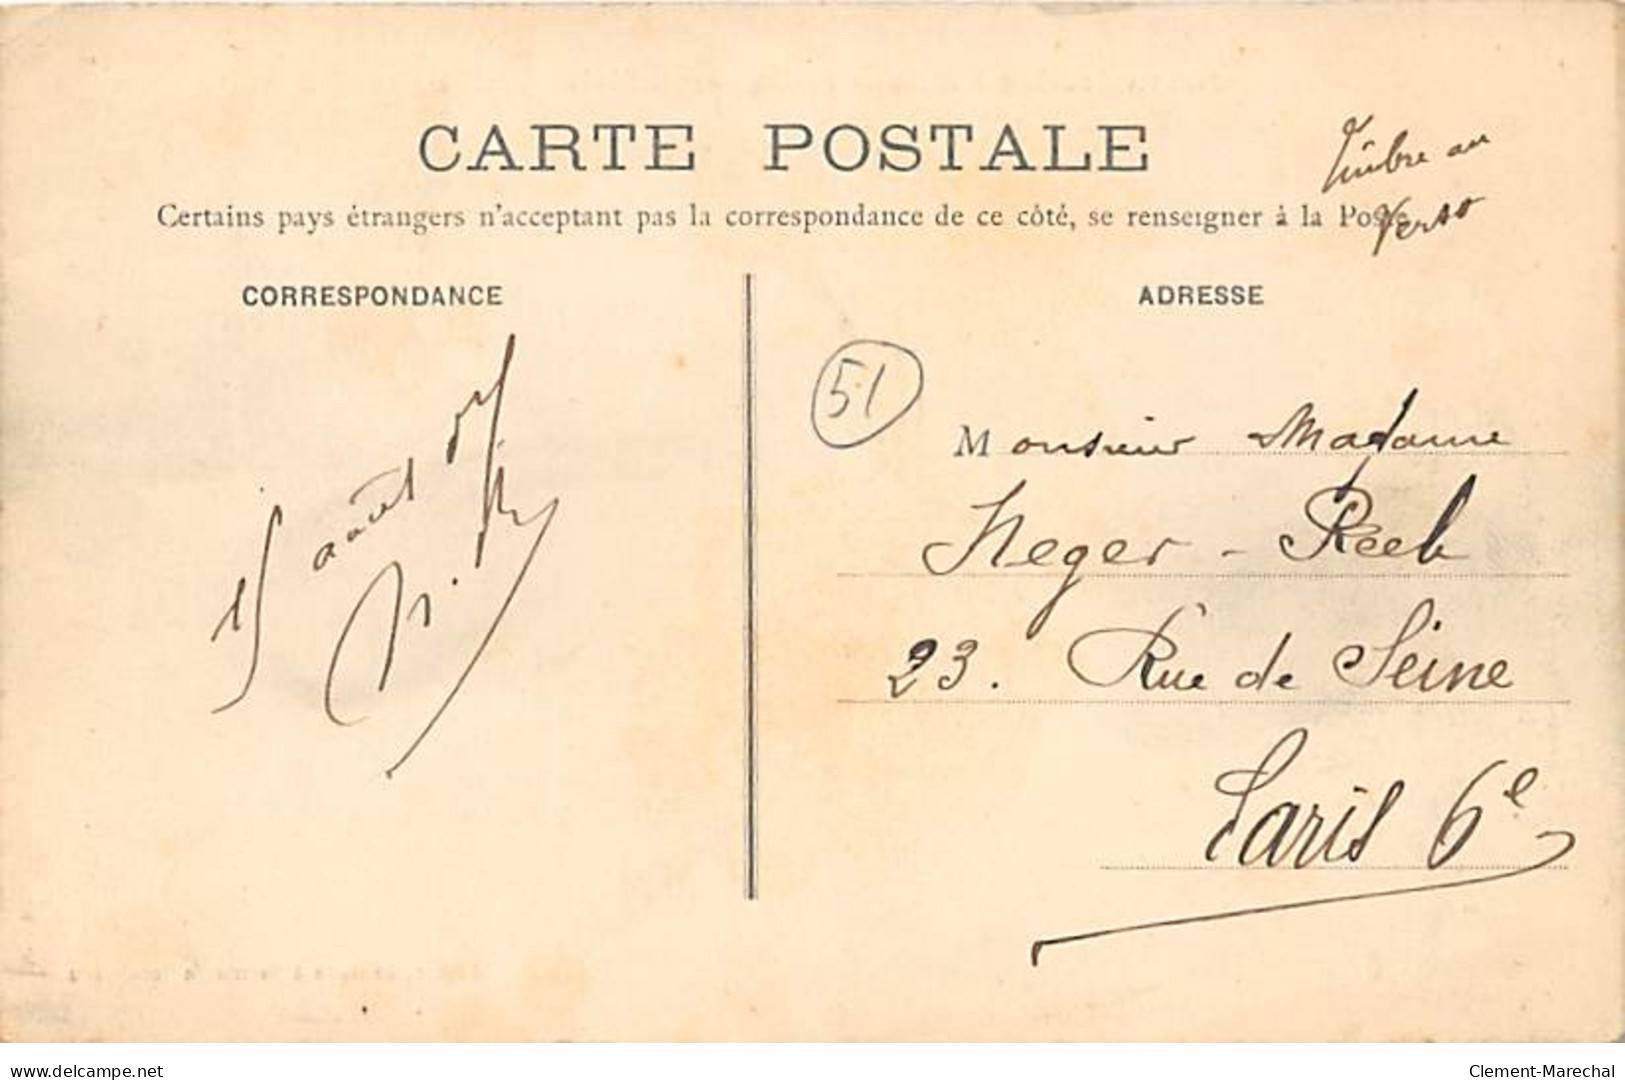 CARTE POSTALE
Timbre au
Verso
Certains pays étrangers n'acceptant pas la correspondance de ce côté, se renseigner à la Poste
CORRESPONDANCE
15 août
ADRESSE
51
Monsieur Madame
Neger - Reeb
23. Rue de Seine
Paris 6e
delcampe.net
Clement-Marechal